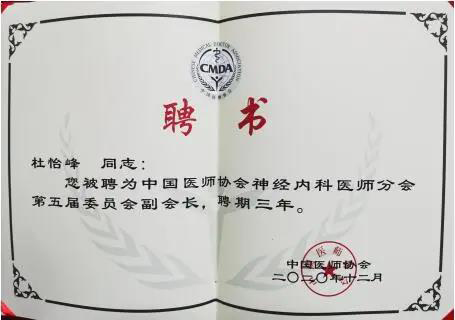 CHINESE MEDICAL DOCTOR ASSOCIATION
CMDA
中国医师协会
聘书
杜怡峰 同志：
您被聘为中国医师协会神经内科医师分会
第五届委员会副会长，聘期三年。
中国医师协会
二〇二〇年十二月